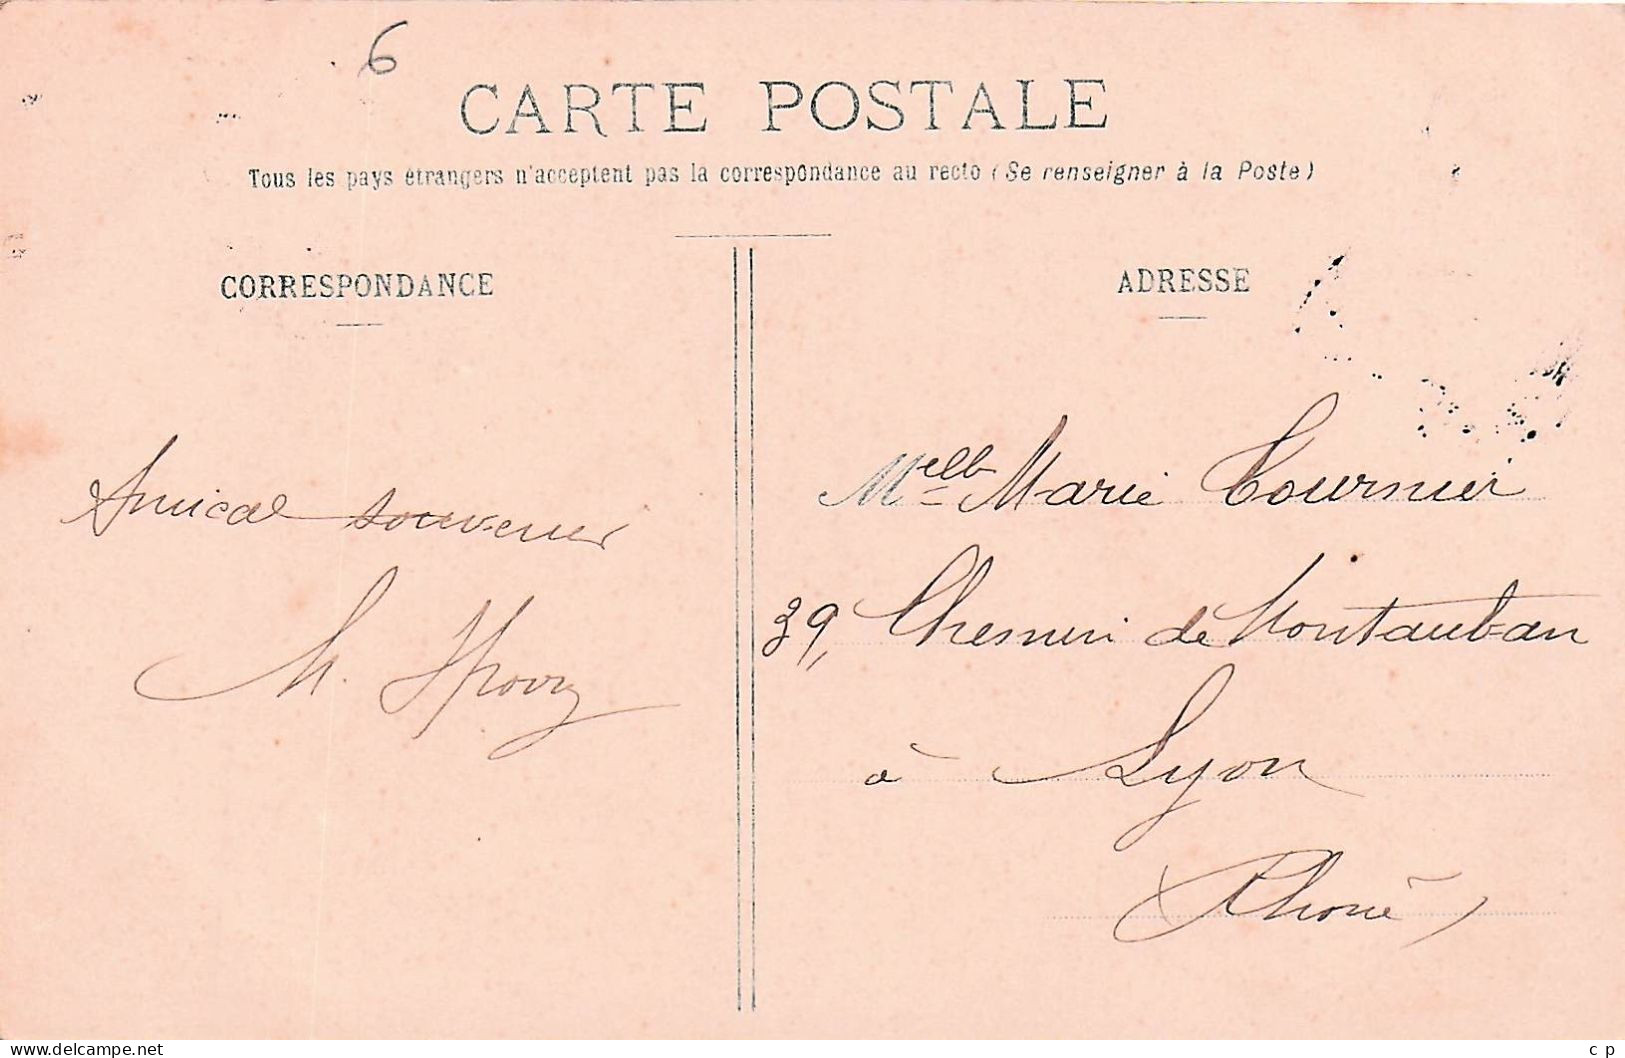 6
CARTE POSTALE
Tous les pays étrangers n'acceptent pas la correspondance au recto (Se renseigner à la Poste)
CORRESPONDANCE
Amical souvenir
M.
ADRESSE
Melle Marie Tournier
39, Chemin de Montauban
à Lyon
(Rhône)
www.delcampe.net
c p